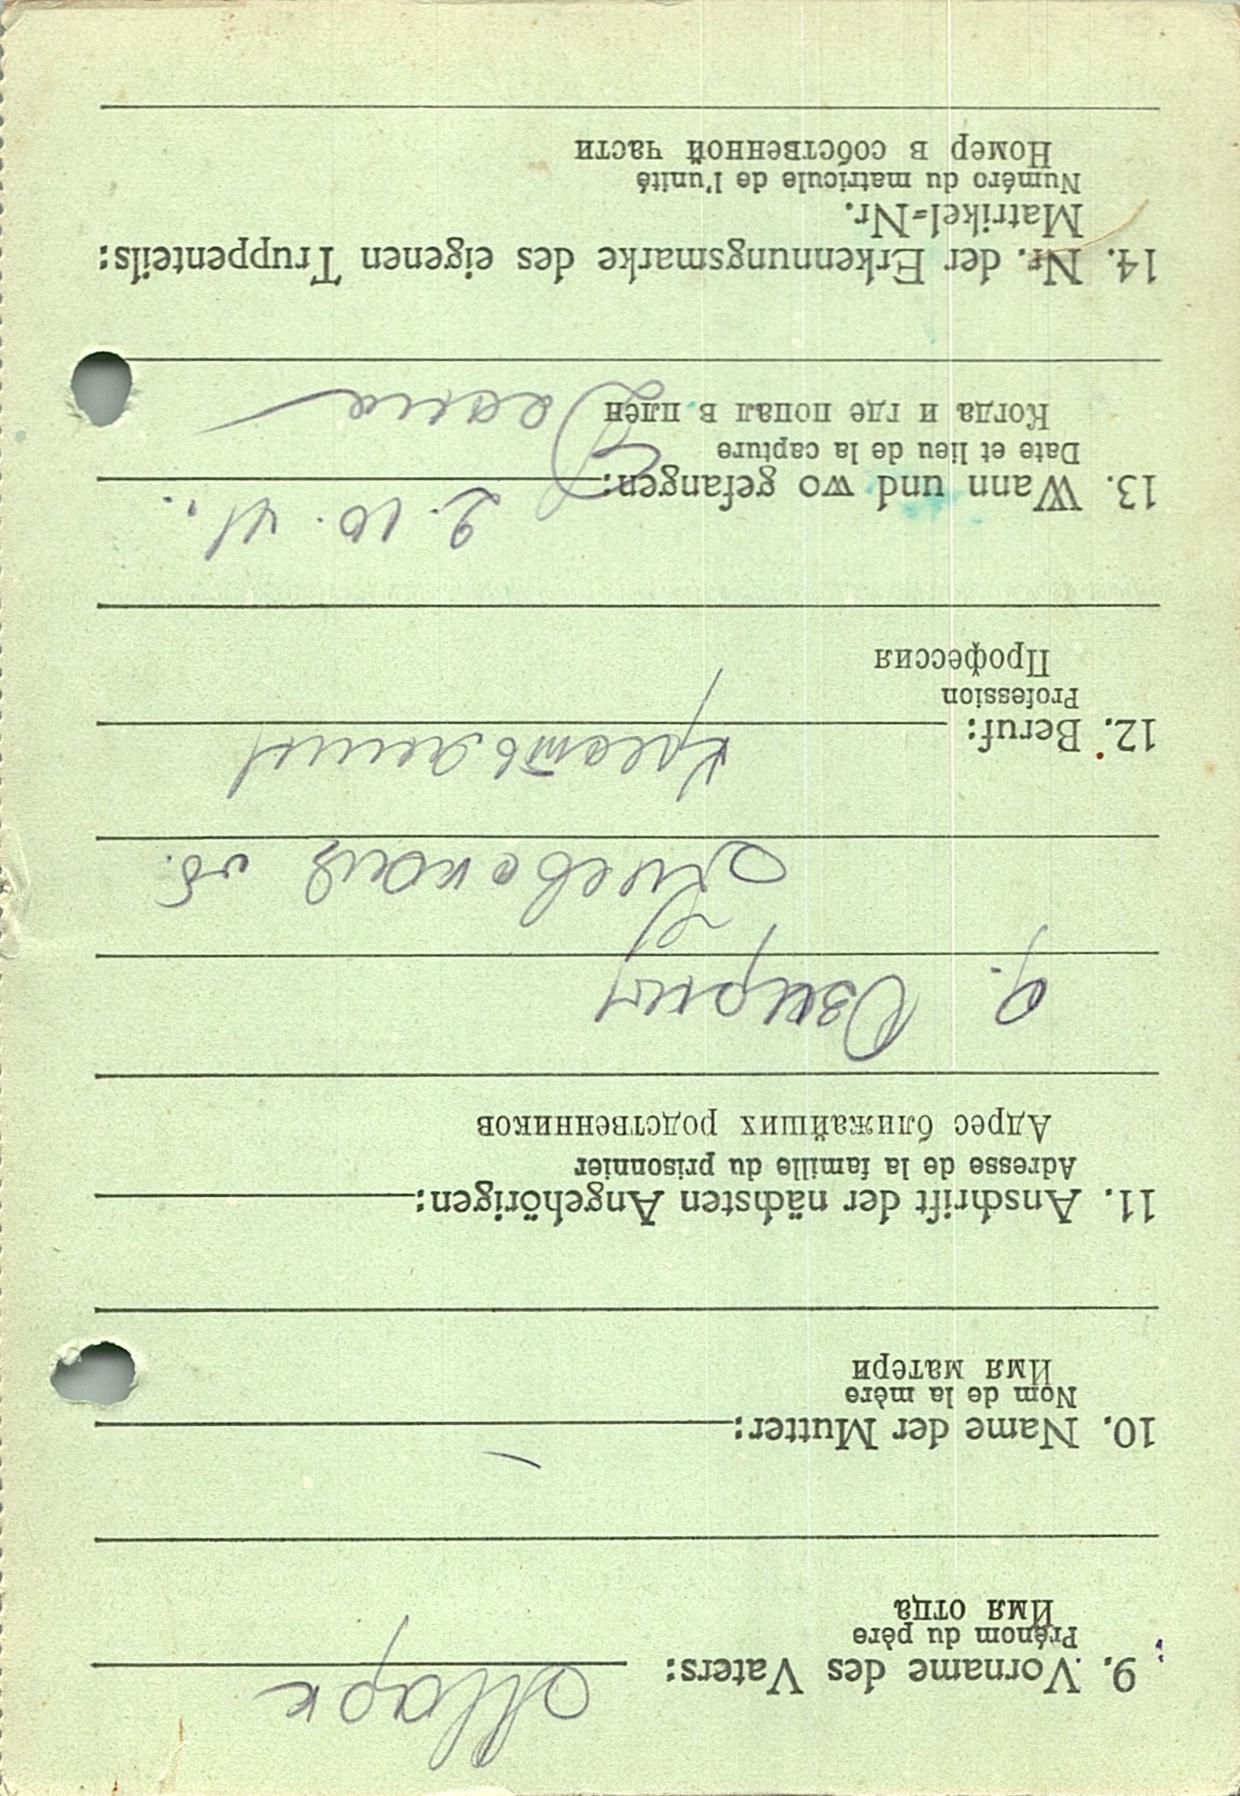 9. Vorname des Vaters: Марк
Prénom du père
Имя отца
10. Name der Mutter: —
Nom de la mère
Имя матери
11. Anschrift der nächsten Angehörigen:
Adresse de la famille du prisonnier
Адрес ближайших родственников
д.
обл.
12. Beruf: крестьянин
Profession
Профессия
13. Wann und wo gefangen: 2. 10. 41.
Date et lieu de la capture
Когда и где попал в плен
14. Nr. der Erkennungsmarke des eigenen Truppenteils:
Matrikel-Nr.
Numéro du matricule de l'unité
Номер в собственной части